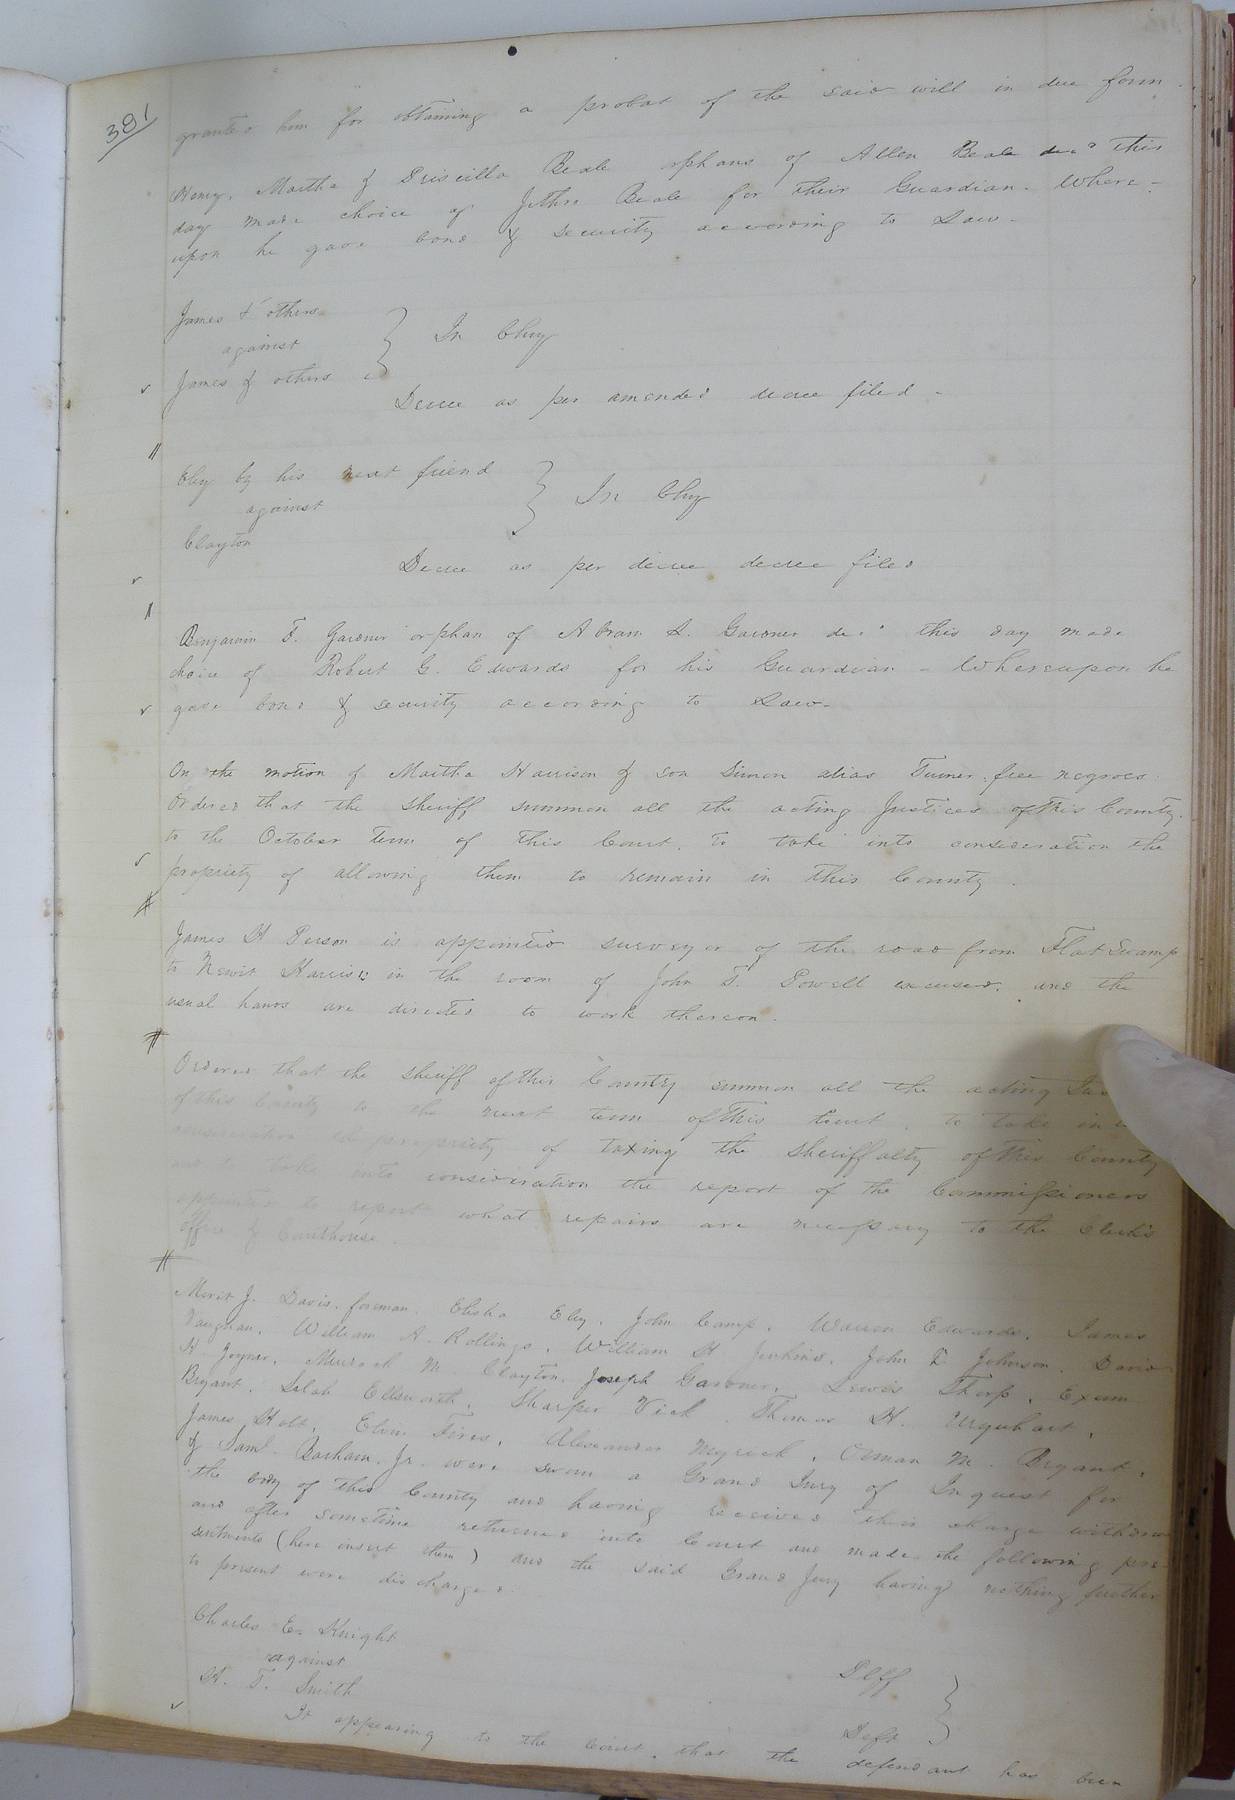 381
granted him for obtaining a probat of the said will in due form.
Henry, Martha & Priscilla Beale orphans of Allen Beale decd this
day made choice of Jethro Beale for their Guardian. Where-
upon he gave bond & security according to Law.
James & others
against
James & others
In Chy
Decree as per amended decree filed.
Eley by his next friend
against
Clayton
In Chy
Decree as per decree decree filed
Benjamin F. Gardner orphan of Abram L. Gardner decd this day made
choice of Robert G. Edwards for his Guardian - Whereupon he
gave bond & security according to Law.
On the motion of Martha Harrison & son Simon alias Turner, free negroes.
Ordered that the Sheriff summon all the acting Justices of this County.
to the October term of this Court, to take into consideration the
propriety of allowing them to remain in this County.
James H Person is appointed surveyor of the road from Flat Swamp
to Newit Harris's in the room of John T. Powell excused, and the
usual hands are directed to work thereon.
Ordered that the Sheriff of this County summon all the acting
of this County to the next term of this Court, to take in
consideration the propriety of taxing the Sheriffalty of this County
and to take into consideration the report of the Commissioners
appointed to report what repairs are necessary to the Clerk's
office & Courthouse.
Merit J. Davis, foreman, Elisha Eley, John Camp, Warren Edwards, James
Vaughan, William A. Rollings, William H Jenkins, John D. Johnson, David
H Joyner, M. Clayton, Joseph Gardner, Lewis Thorp, Exum
Bryant, Selah Ellsworth, Sharper Vick, Thomas H. Urquhart,
James Holt, Elim Fires, Alexander Myrick, Orman M. Bryant,
& Saml. Barham, Jr. were sworn a Grand Jury of Inquest for
the body of this County and having received their charge withdrew
and after sometime returned into Court and made the following pre-
sentments (here insert them) and the said Grand Jury having nothing further
to present were discharged.
Charles E. Knight
against
H. T. Smith
Plff
Deft
It appearing to the Court, that the defendant has been